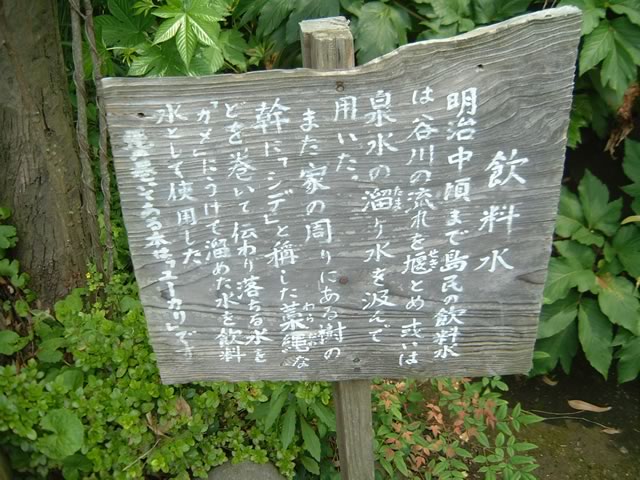 飲料水
明治中頃まで島民の飲料水
は谷川の流れを堰とめ或いは
泉水の溜り水を汲んで
用いた。
また家の周りにある樹の
幹に「シデ」と稱した藁縄な
どを巻いて伝わり落ちる水を
「ガメ」にうけて溜めた水を飲料
水として使用した
巻いてある木は「ユーカリ」です